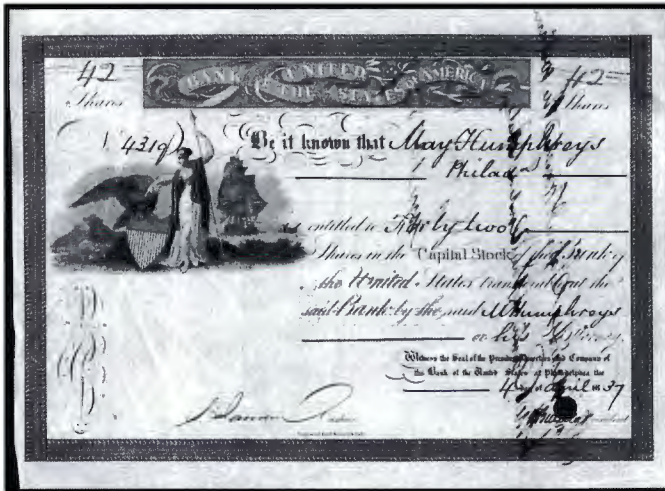 42
Shares
BANK OF THE UNITED STATES OF AMERICA
42
Shares
Be it known that May Humphreys
Philada
is entitled to Forty two
Shares in the Capital Stock of the Bank of
the United States transferable at the
said Bank by the said M Humphreys
or his Attorney.
Witness the Seal of the President Directors and Company of
the Bank of the United States at Philadelphia the
4 day of April 1837
President